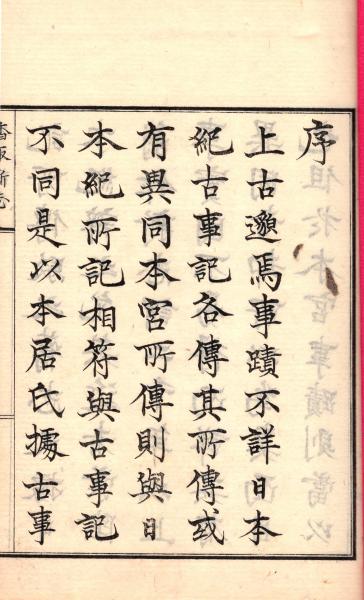 序
上古邈焉事蹟不詳日本
紀古事記各傳其所傳或
有異同本宮所傳則與日
本紀所記相符與古事記
不同是以本居氏據古事